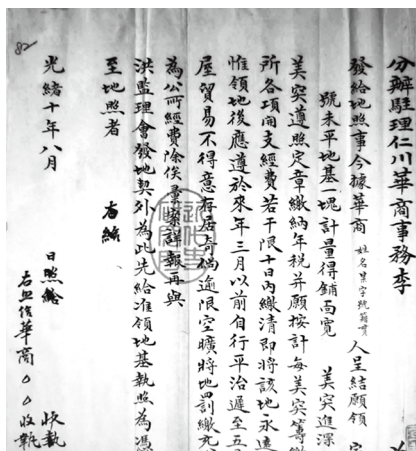 82
分辦駐理仁川華商事務李
發給地照事今據華商 姓名里字號籍貫 人呈結願領
號未平地基一塊計量得鋪面寬 美突進深
美突遵照定章繳納年稅并願按計每美突等繳
所各項開支經費若干限十日內繳清即將該地永遠
惟領地後應遵於來年三月以前自行平治遲至五
屋貿易不得意存居奇倘逾限空曠將地罰繳充
為公所經費除俟彙案詳報再與
洪監理會發地契外為此先給准領地基執照為憑
至地照者
右給
光緒十年八月 日照給
右照給華商 △△收執
收執